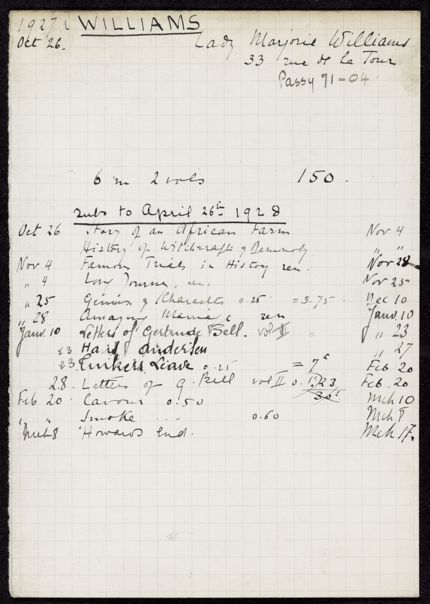 1927 WILLIAMS
Oct 26. Lady Marjorie Williams
33 rue de la Tour
Passy 71-04
6 m 2 vols 150.
subs to April 26th 1928
Oct 26 Story of an African Farm Nov 4
History of Witchcraft & Demonoly " "
Nov 4 Famous Trials in History ren. Nov 28
" 4 Nov 25
" 25 Genius & Character 0.25 = 3.75 Dec 10
" 28 ren Janv 10
Janv 10 Letters of Gertrude Bell. vol II " 23
23 Hans Andersen " 27
23 Clinkers Leave 0.25 = Feb 20
28. Letters of G. Bell vol II 0. Feb. 20
Feb 20 Cavour 0.50 Mch 10
" Smoke ... 0.60 Mch 8
Mch 8 Howards End. Mch 17.